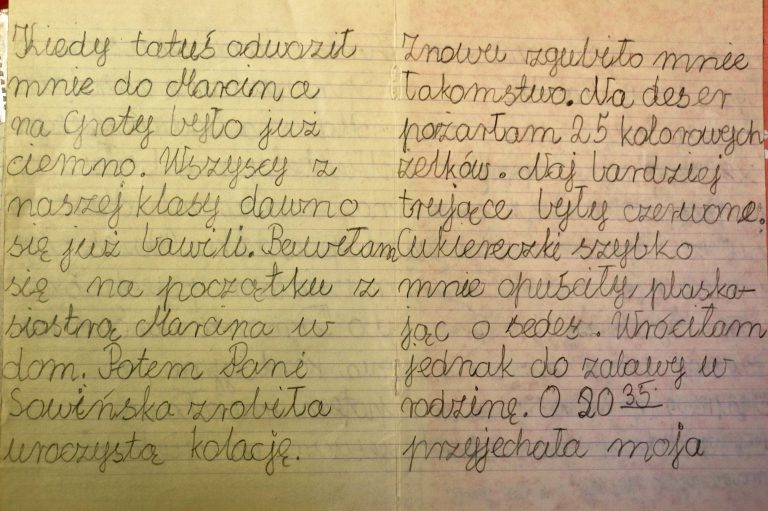 Kiedy tatuś odwoził
mnie do Marcina
na Groty było już
ciemno. Wszyscy z
naszej klasy dawno
się już bawili. Bawiłam
się na początku z
siostrą Marcina w
dom. Potem Pani
Sowińska zrobiła
uroczystą kolację.
Znowu zgubiło mnie
łakomstwo. Na deser
pożarłam 25 kolorowych
żelków. Naj bardziej
trujące były czerwone.
Cukiereczki szybko
mnie opuściły plaska-
jąc o sedes. Wróciłam
jednak do zabawy w
rodzinę. O 20 35.
przyjechała moja